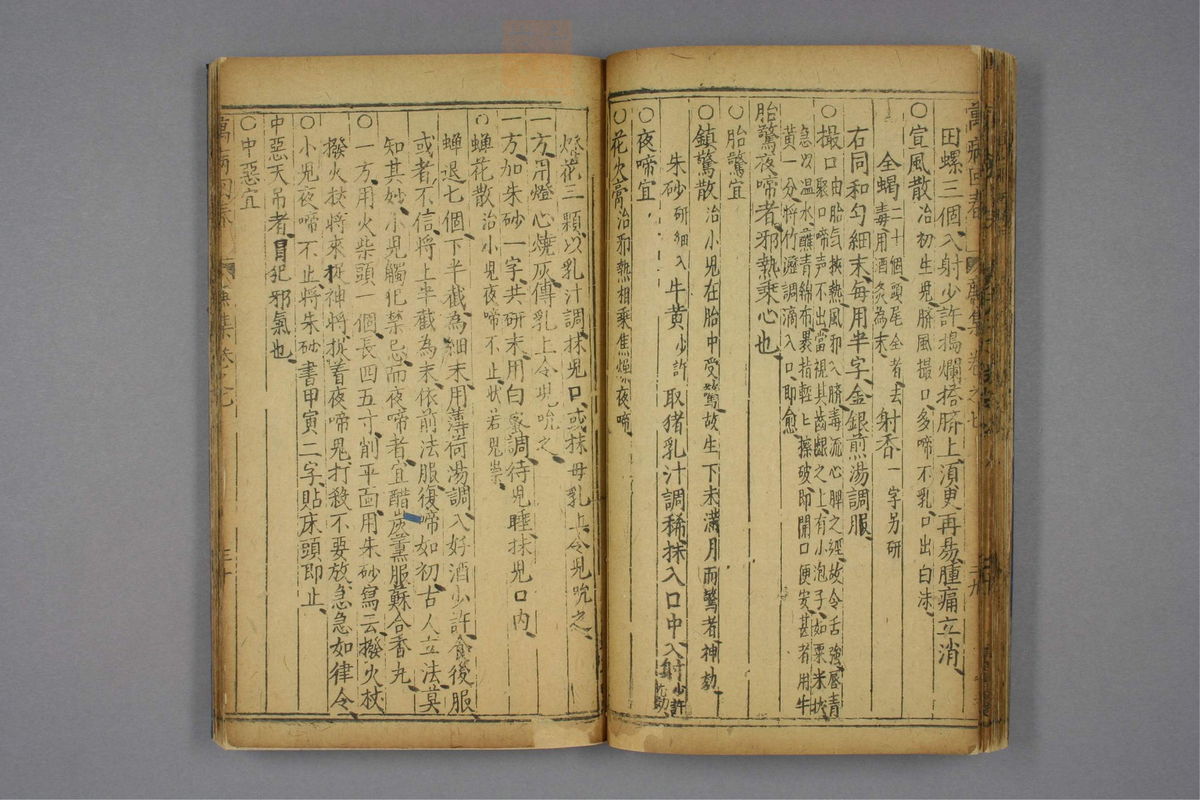 田螺三個入射少許搗爛搭臍上須更再易腫痛立消
○宣風散治初生児臍風撮口多啼不乳口出白沫
全蝎二十個頭尾全者去毒用酒炙為末 射香一字另研
右同和勻細末每用半字金銀煎湯調服
○撮口由胎氣挾熱風邪入臍毒流心脾之經故令舌強唇青
聚口啼声不出當視其齒齦之上有小泡子如粟米状
急以溫水蘸青綿布裹指輕匕擦破即開口便安甚者用牛
黃一分將竹瀝調滴入口即愈
胎驚夜啼者邪熱乘心也
○胎驚宜
○鎮驚散治小児在胎中受驚故生下未滿月而驚者神効
朱砂研細入牛黃少許取猪乳汁調稀抹入口中入射少許尤効
○夜啼宜
○花火膏治邪熱相乘焦燥夜啼
燈花三顆以乳汁調抹児口或抹母乳上令児吮之
一方用燈心燒灰傅乳上令児吮之
一方加朱砂一字共研末用白蜜調待児睡抹児口内
○蟬花散治小児夜啼不止状若鬼祟
蟬退七個下半截為細末用薄荷湯調入好酒少許食後服
或者不信將上半截為末依前法服復啼如初古人立法莫
知其妙小児觸犯禁忌而夜啼者宜醋炭熏服蘇合香丸
○一方用火柴頭一個長四五寸削平面用朱砂寫云撥火杖
撥火杖將來捉神將捉着夜啼鬼打殺不要放急急如律令
○小児夜啼不止將朱砂書甲寅二字貼床頭即止
中惡天吊者冒犯邪氣也
○中惡宜